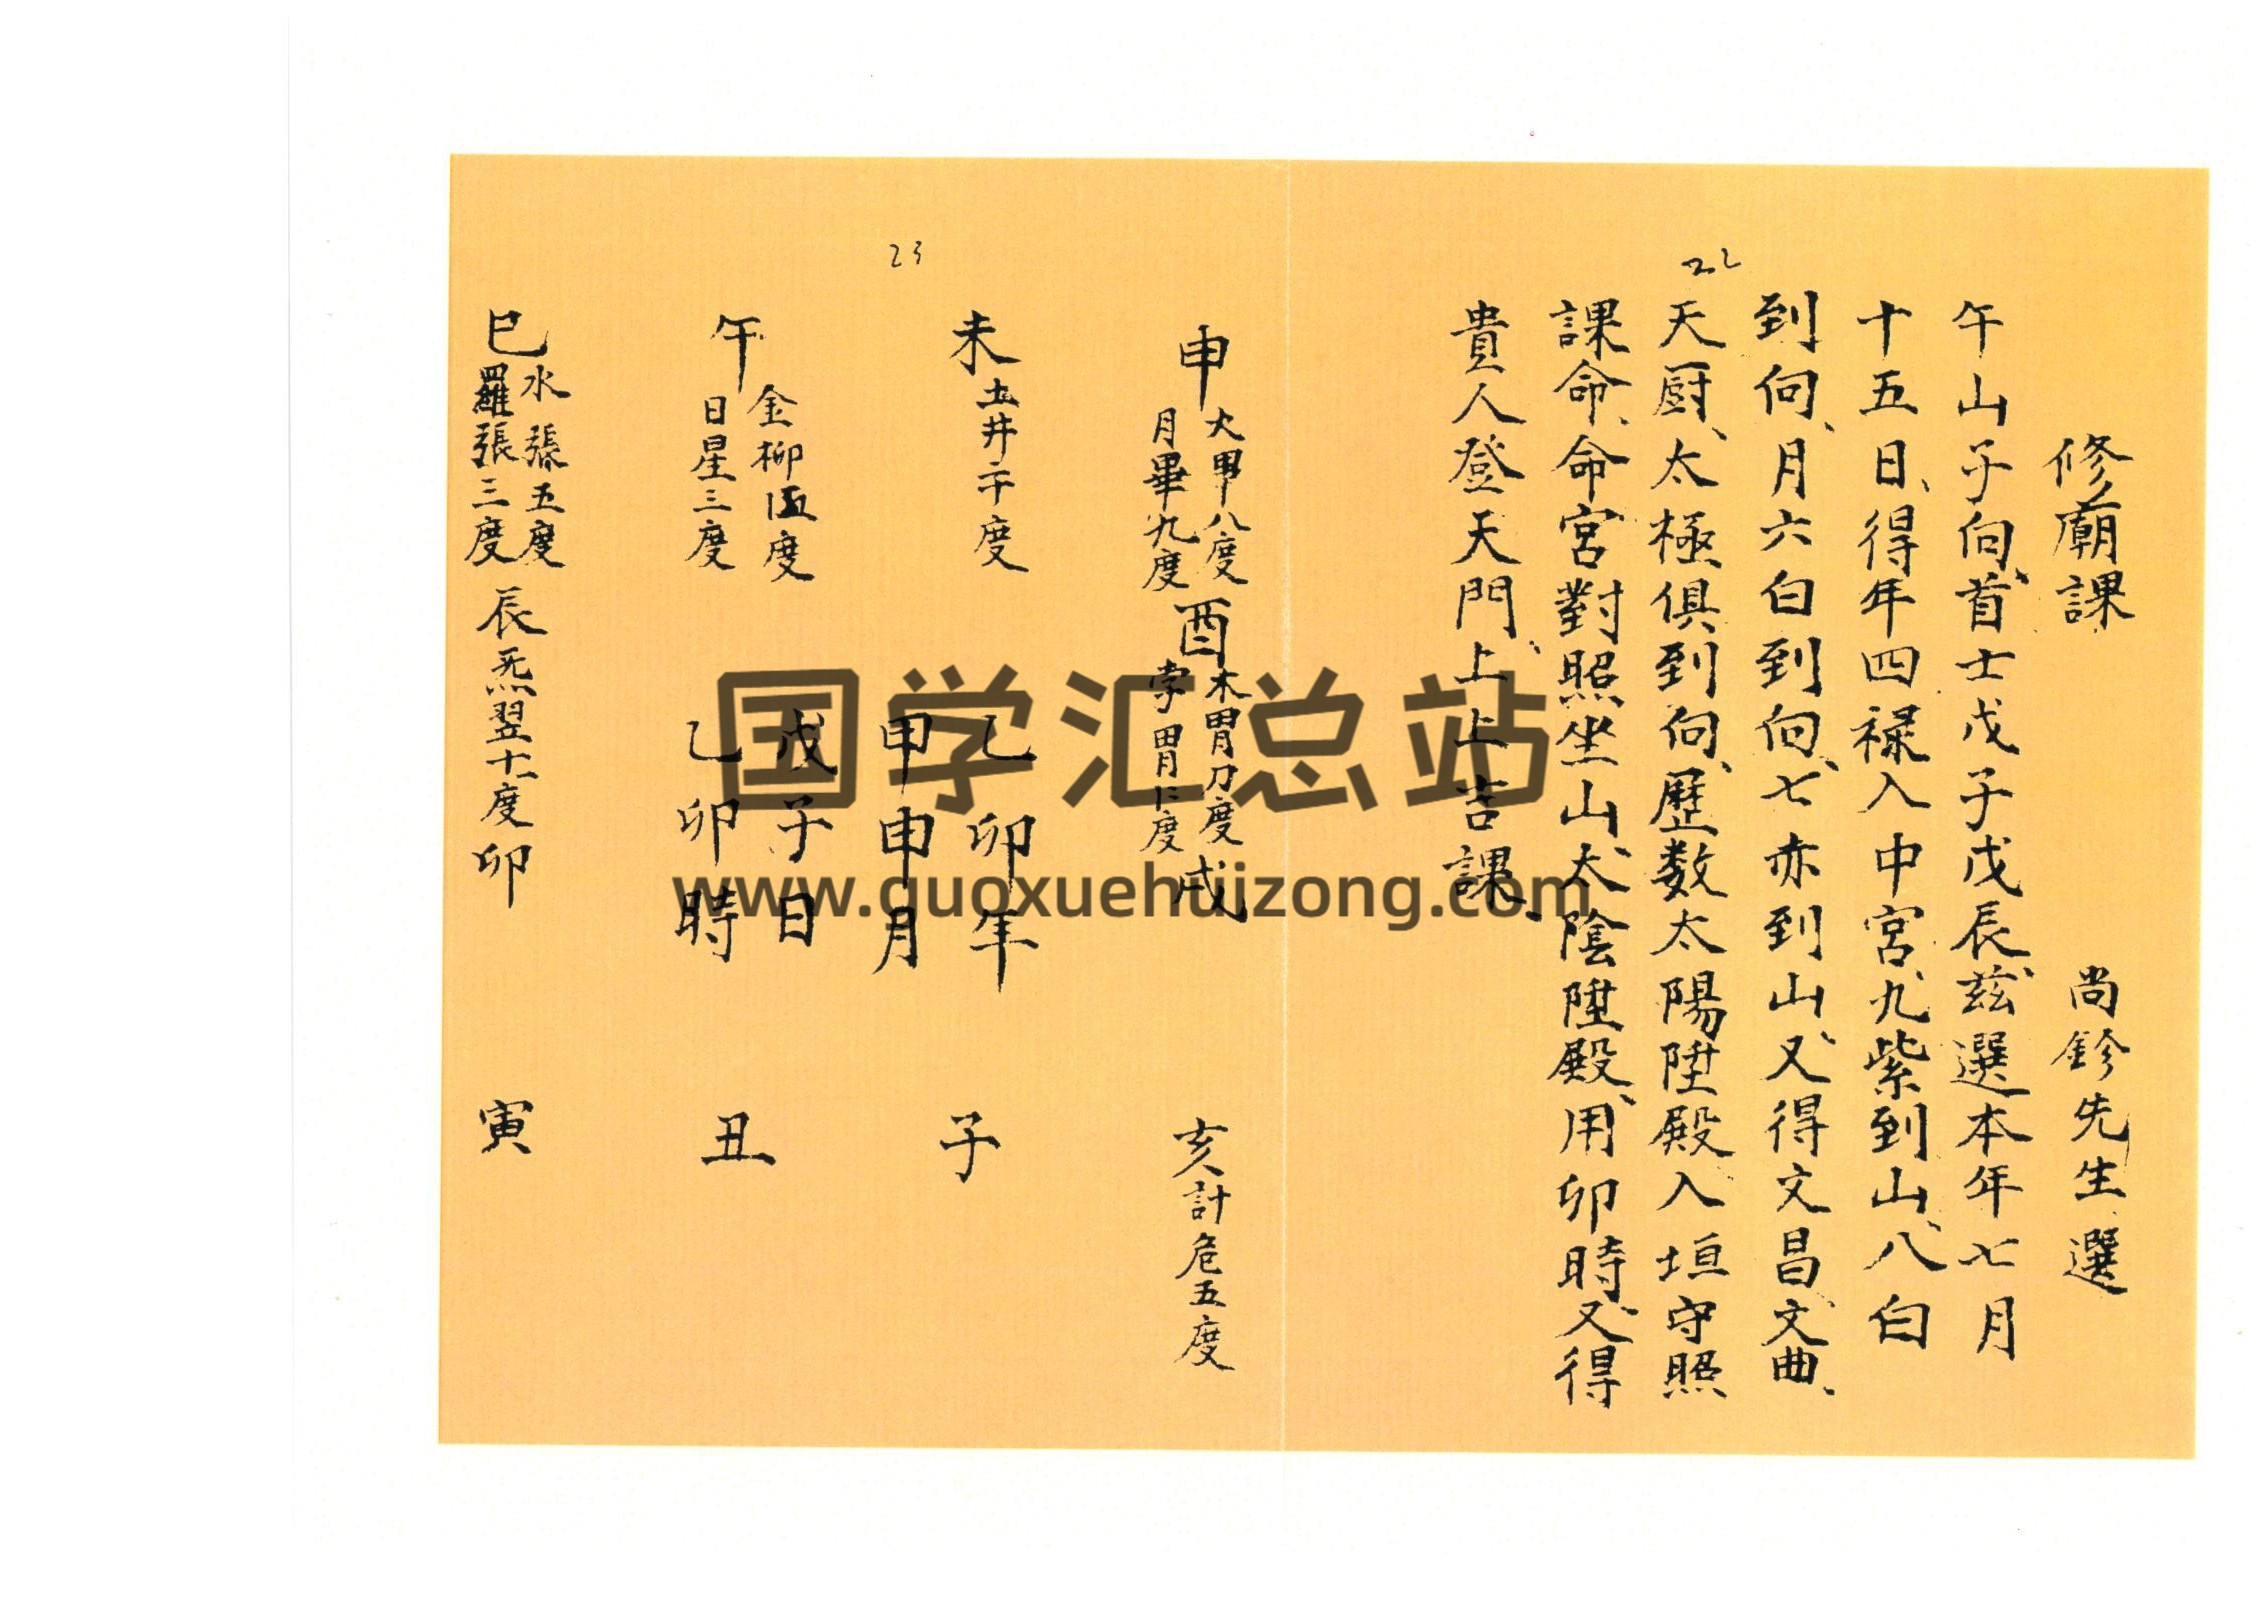 22
修廟課　尚鉁先生選
午山子向、首士戊子戊辰、茲選本年七月
十五日、得年四禄入中宮、九紫到山、八白
到向、月六白到向、七赤到山、又得文昌、文曲、
天厨、太極俱到向、歷数太陽陞殿入垣守照
課命、命宮對照坐山、太陰陞殿、用卯時、又得
貴人登天門、上上吉課、
23
申
火畢八度
月畢九度
酉
木胃刀度
孛胃仁度
戌
亥 計危五度
未 土井干度
子
乙卯年
甲申月
戊子日
乙卯時
午
金柳伍度
日星三度
丑
巳
水張五度
羅張三度
辰 炁翌十一度
卯
寅
国学汇总站
www.guoxuehuizong.com